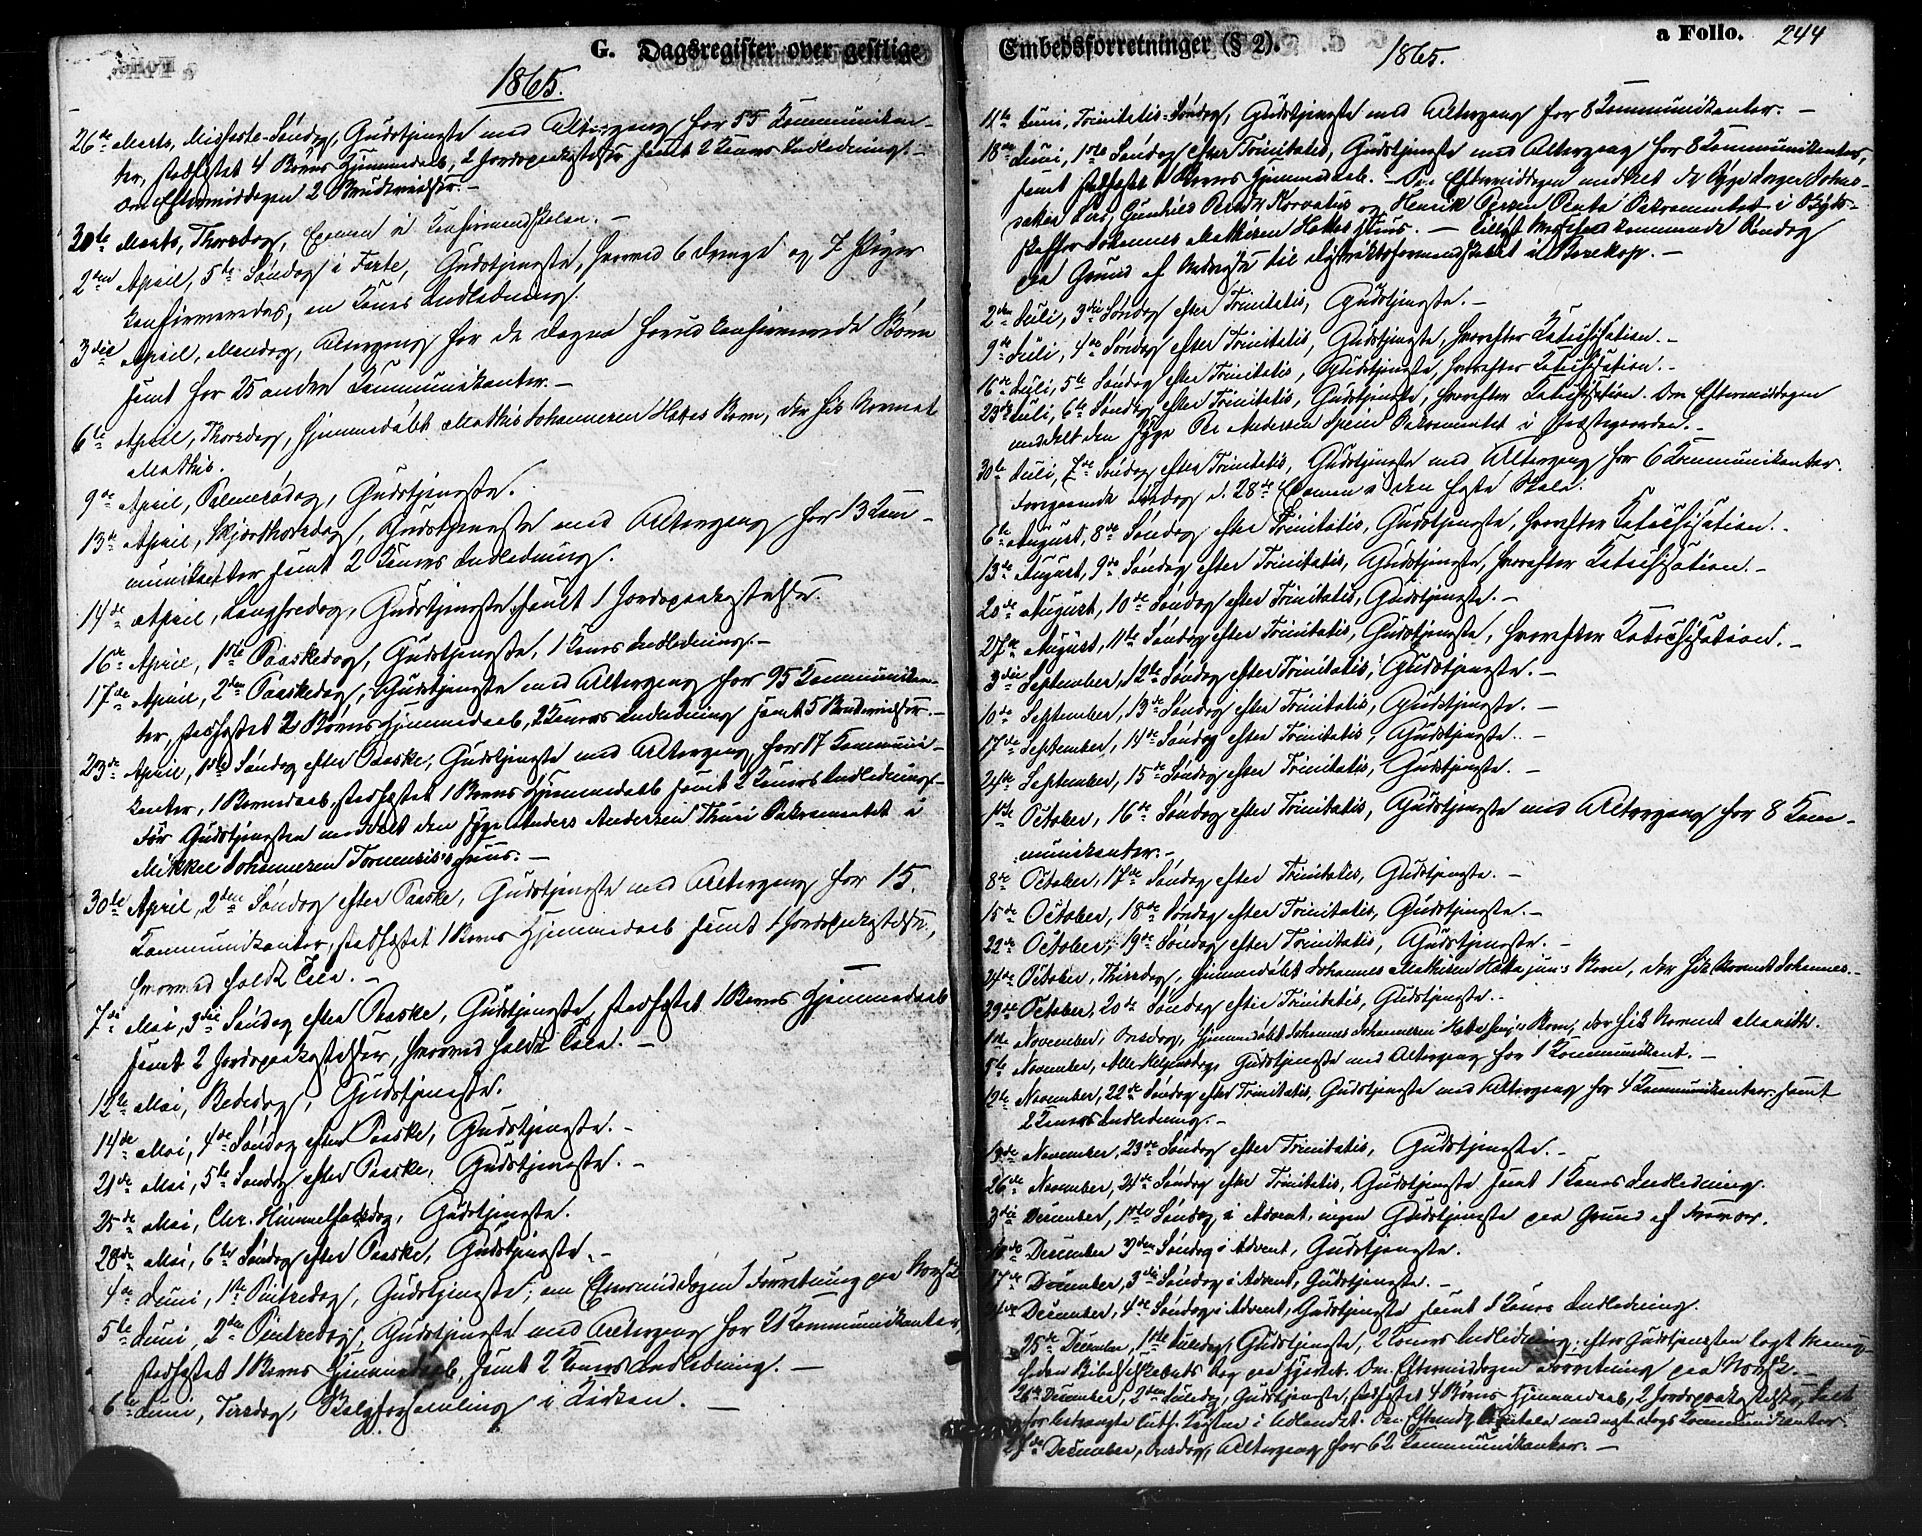 G. Dagsregister over gestlige
1865.
26de Marts, Midfaste-Søndag, Gudstjeneste med Altergang for 55 Kommunikan-
ter, stadfæstet 4 Børns Hjemmedaab, 2 Jordpaakastelser samt 2 Koners Indledning. –
Om Eftermiddagen 2 Brudevielser. –
30te Marts, Thorsdag, Examen i Konfirmandskolen. –
2den April, 5te Søndag i Faste, Gudstjeneste, hvorved 6 Drenge og 7 Piger
konfirmeredes, en Kones Indledning.
3die April, Mandag, Altergang for de Dagen forud konfirmerede Børn
samt for 25 andre Kommunikanter. –
6te April, Thorsdag, hjemmedøbt Mathis Johannesen Hættas Barn, der fik Navnet
Mathis.
9de April, Palmesødag, Gudstjeneste.
13de April, Skjærthorsdag, Gudstjeneste med Altergang for 13 Kom-
munikanter samt 2 Koners Indledning.
14de April, Langfredag, Gudstjeneste samt 1 Jordpaakastelse
16de April, 1ste Paaskedag, Gudstjeneste, 1 Kones Indledning. –
17de April, 2den Paaskedag, Gudstjeneste med Altergang for 95 Kommunikan-
ter, stadfæstet 2 Børns Hjemmedaab, 2 Koners Indledning samt 5 Brudevielser. –
23de April, 1ste Søndag efter Paaske, Gudstjeneste med Altergang for 17 Kommuni-
kanter, 1 Barnedaab, stadfæstet 1 Barns Hjemmedaab samt 2 Koners Indledning. –
Før Gudstjenesten meddelt den syge Anders Andersen Thuri Sakramentet i
Mikkel Johannesen Tornensis's Huus. –
30te April, 2den Søndag efter Paaske, Gudstjeneste med Altergang for 15.
Kommunikanter, stadfæstet 1 Barns Hjemmedaab samt 1 Jordpaakastelse,
hvorved holdt Tale. –
7de Mai, 3die Søndag efter Paaske, Gudstjeneste, stadfæstet 1 Barns Hjemmedaab
samt 2 Jordpaakastelser, hvorved holdt Tale. –
12te Mai, Bededag, Gudstjeneste.
14de Mai, 4de Søndag efter Paaske, Gudstjeneste. –
21de Mai, 5te Søndag efter Paaske, Gudstjeneste. –
25de Mai, Chr. Himmelfartsdag, Gudstjeneste.
28de Mai, 6te Søndag efter Paaske, Gudstjeneste. –
4de Juni, 1ste Pintsedag, Gudstjeneste; om Eftermiddagen Forretning paa Norsk
5te Juni, 2den Pintsedag, Gudstjeneste med Altergang for 21 Kommunikanter,
stadfæstet 1 Barns Hjemmedaab, samt 2 Koners Indledning. –
6te Juni, Tirsdag, Valgforsamling i Kirken. –
Embedsforretninger (§ 2).
a Folio. 244
1865.
11te Juni, Trinitatis-Søndag, Gudstjeneste med Altergang for 8 Kommunikanter. –
18de Juni, 1ste Søndag efter Trinitatis, Gudstjeneste med Altergang for 8 Kommunikanter,
samt stadfæstet 1 Barns Hjemmedaab. – Om Eftermiddagen meddelt de syge
Henrik Persen Penta Sakramentet i
Johannes Mathisen Hættas Huus. – kommende Søndag
paa Grund af
2den Juli, 3die Søndag efter Trinitatis, Gudstjeneste. –
9de Juli, 4de Søndag efter Trinitatis, Gudstjeneste, hvorefter Katechisation. –
16de Juli, 5te Søndag efter Trinitatis, Gudstjeneste, hvorefter Katechisation. –
23de Juli, 6te Søndag efter Trinitatis, Gudstjeneste, hvorefter Katechisation. Om Eftermiddagen
meddelt den syge Per Andersen Spein Sakramentet i Præstegaarden. –
30te Juli, 7de Søndag efter Trinitatis, Gudstjeneste med Altergang for 6 Kommunikanter.
Foregaaende d. 28de Examen i den faste Skole.
6te August, 8de Søndag efter Trinitatis, Gudstjeneste, hvorefter Katechisation. –
13de August, 9de Søndag efter Trinitatis, Gudstjeneste, hvorefter Katechisation. –
20de August, 10de Søndag efter Trinitatis, Gudstjeneste. –
27de August, 11te Søndag efter Trinitatis, Gudstjeneste, hvorefter Katechisation. –
3die September, 12te Søndag efter Trinitatis, Gudstjeneste. –
10de September, 13de Søndag efter Trinitatis, Gudstjeneste. –
17de September, 14de Søndag efter Trinitatis, Gudstjeneste. –
24de September, 15de Søndag efter Trinitatis, Gudstjeneste. –
1ste October, 16de Søndag efter Trinitatis, Gudstjeneste med Altergang for 8 Kom-
munikanter. –
8de October, 17de Søndag efter Trinitatis, Gudstjeneste. –
15de October, 18de Søndag efter Trinitatis, Gudstjeneste. –
22de October, 19de Søndag efter Trinitatis, Gudstjeneste. –
24de October, Thirsdag, hjemmedøbt Johannes Mathisen Hætta jun:s Barn, der fik Navnet Johannes. –
29de October, 20de Søndag efter Trinitatis, Gudstjeneste. –
1ste November, Onsdag, hjemmedøbt Johannes Johannesen Hættas Barn, der fik Navnet
5te November, Alle-Helgensdag, Gudstjeneste med Altergang for 1 Kommunikant. –
12te November, 22de Søndag efter Trinitatis, Gudstjeneste med Altergang for 4 Kommunikanter samt
2 Koners Indledning. –
19de November, 23de Søndag efter Trinitatis, Gudstjeneste. –
26de November, 24de Søndag efter Trinitatis, Gudstjeneste samt 1 Kones Indledning.
3die December, 1ste Søndag i Advent, ingen Gudstjeneste paa Grund af
10de December 2den Søndag i Advent, Gudstjeneste.
17de December, 3die Søndag i Advent, Gudstjeneste. –
24de December, 4de Søndag i Advent, Gudstjeneste samt 1 Kones Indledning.
25de December, 1ste Juledag, Gudstjeneste, 2 Koners Indledning; efter Gudstjenesten lagt Menig-
heden Bibelselskabets Sag paa Hjertet. Om Eftermiddagen Forretning paa Norsk. –
26de December, 2den Juledag, Gudstjeneste, stadfæstet 4 Børns Hjemmedaab, 2 Jordpaakastelser,
i Udlandet. Om Eftermdg. Skriftetale med næste Dags Kommunikanter.
27de December, Onsdag, Altergang for 62 Kommunikanter. –